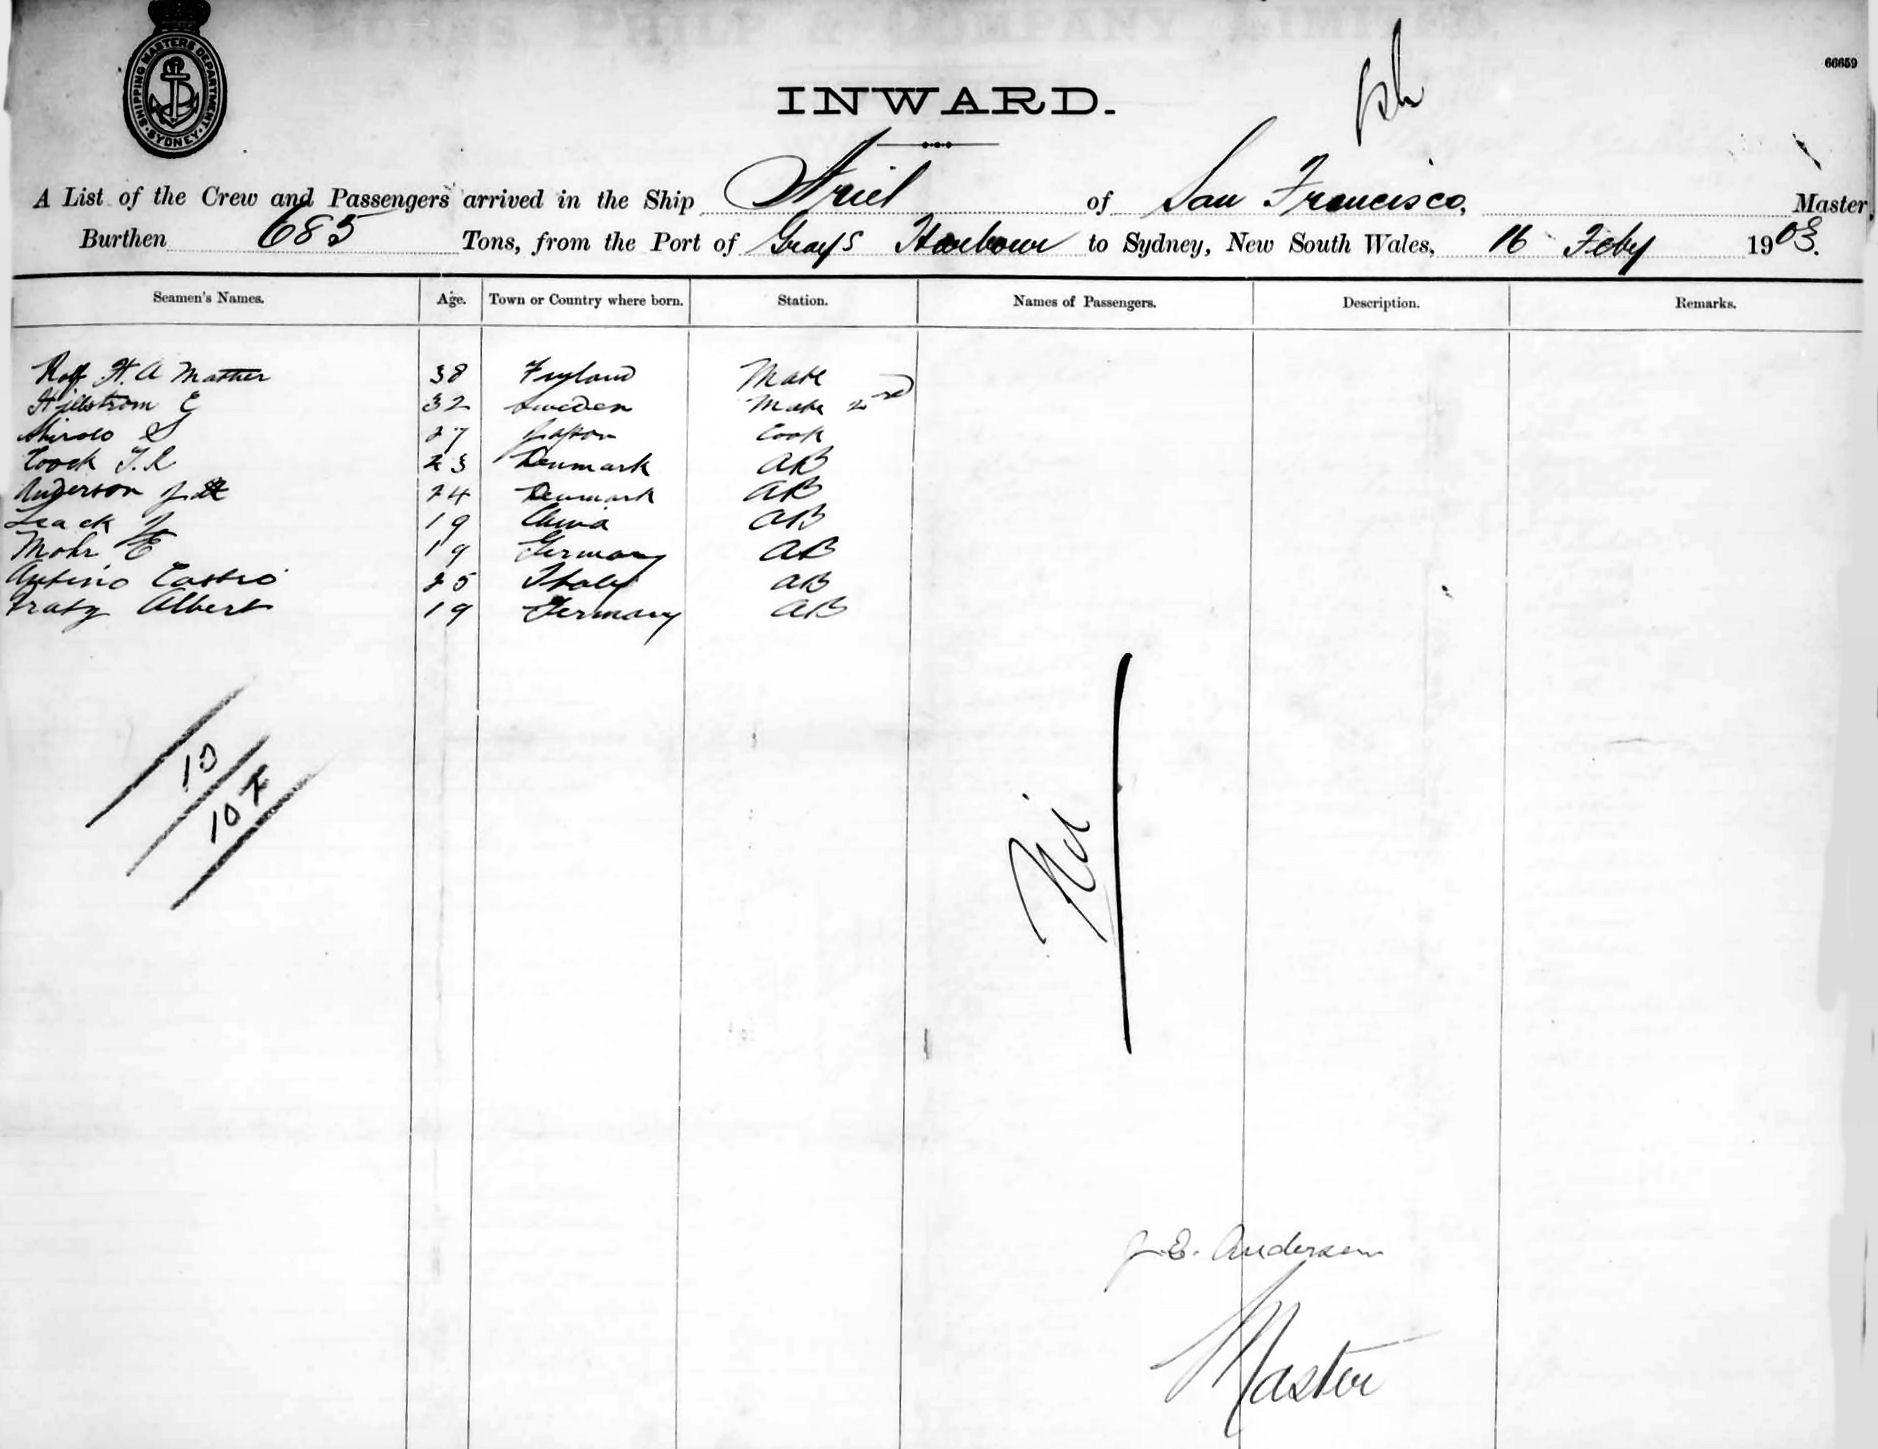 MORNS, PHILP & COMPANY LIMITED.
SHIPPING MASTERS DEPARTMENT
SYDNEY
66659
INWARD.
A List of the Crew and Passengers arrived in the Ship Ariel of San Francisco, Master
Burthen 685 Tons, from the Port of Grays Harbour to Sydney, New South Wales, 16 Feby 1903.
Seamen's Names. Age. Town or Country where born. Station. Names of Passengers. Description. Remarks.
H. A 38 Mate
Hillstrom E 32 Sweden Mate 2nd
S 27 Japan Cook
23 Denmark AB
Anderson J 24 Denmark AB
J 19 China AB
Mohr E 19 Germany AB
Castro 25 Italy AB
Albert 19 Germany AB
10
10 F
Nil
J. E. Anderson
Master